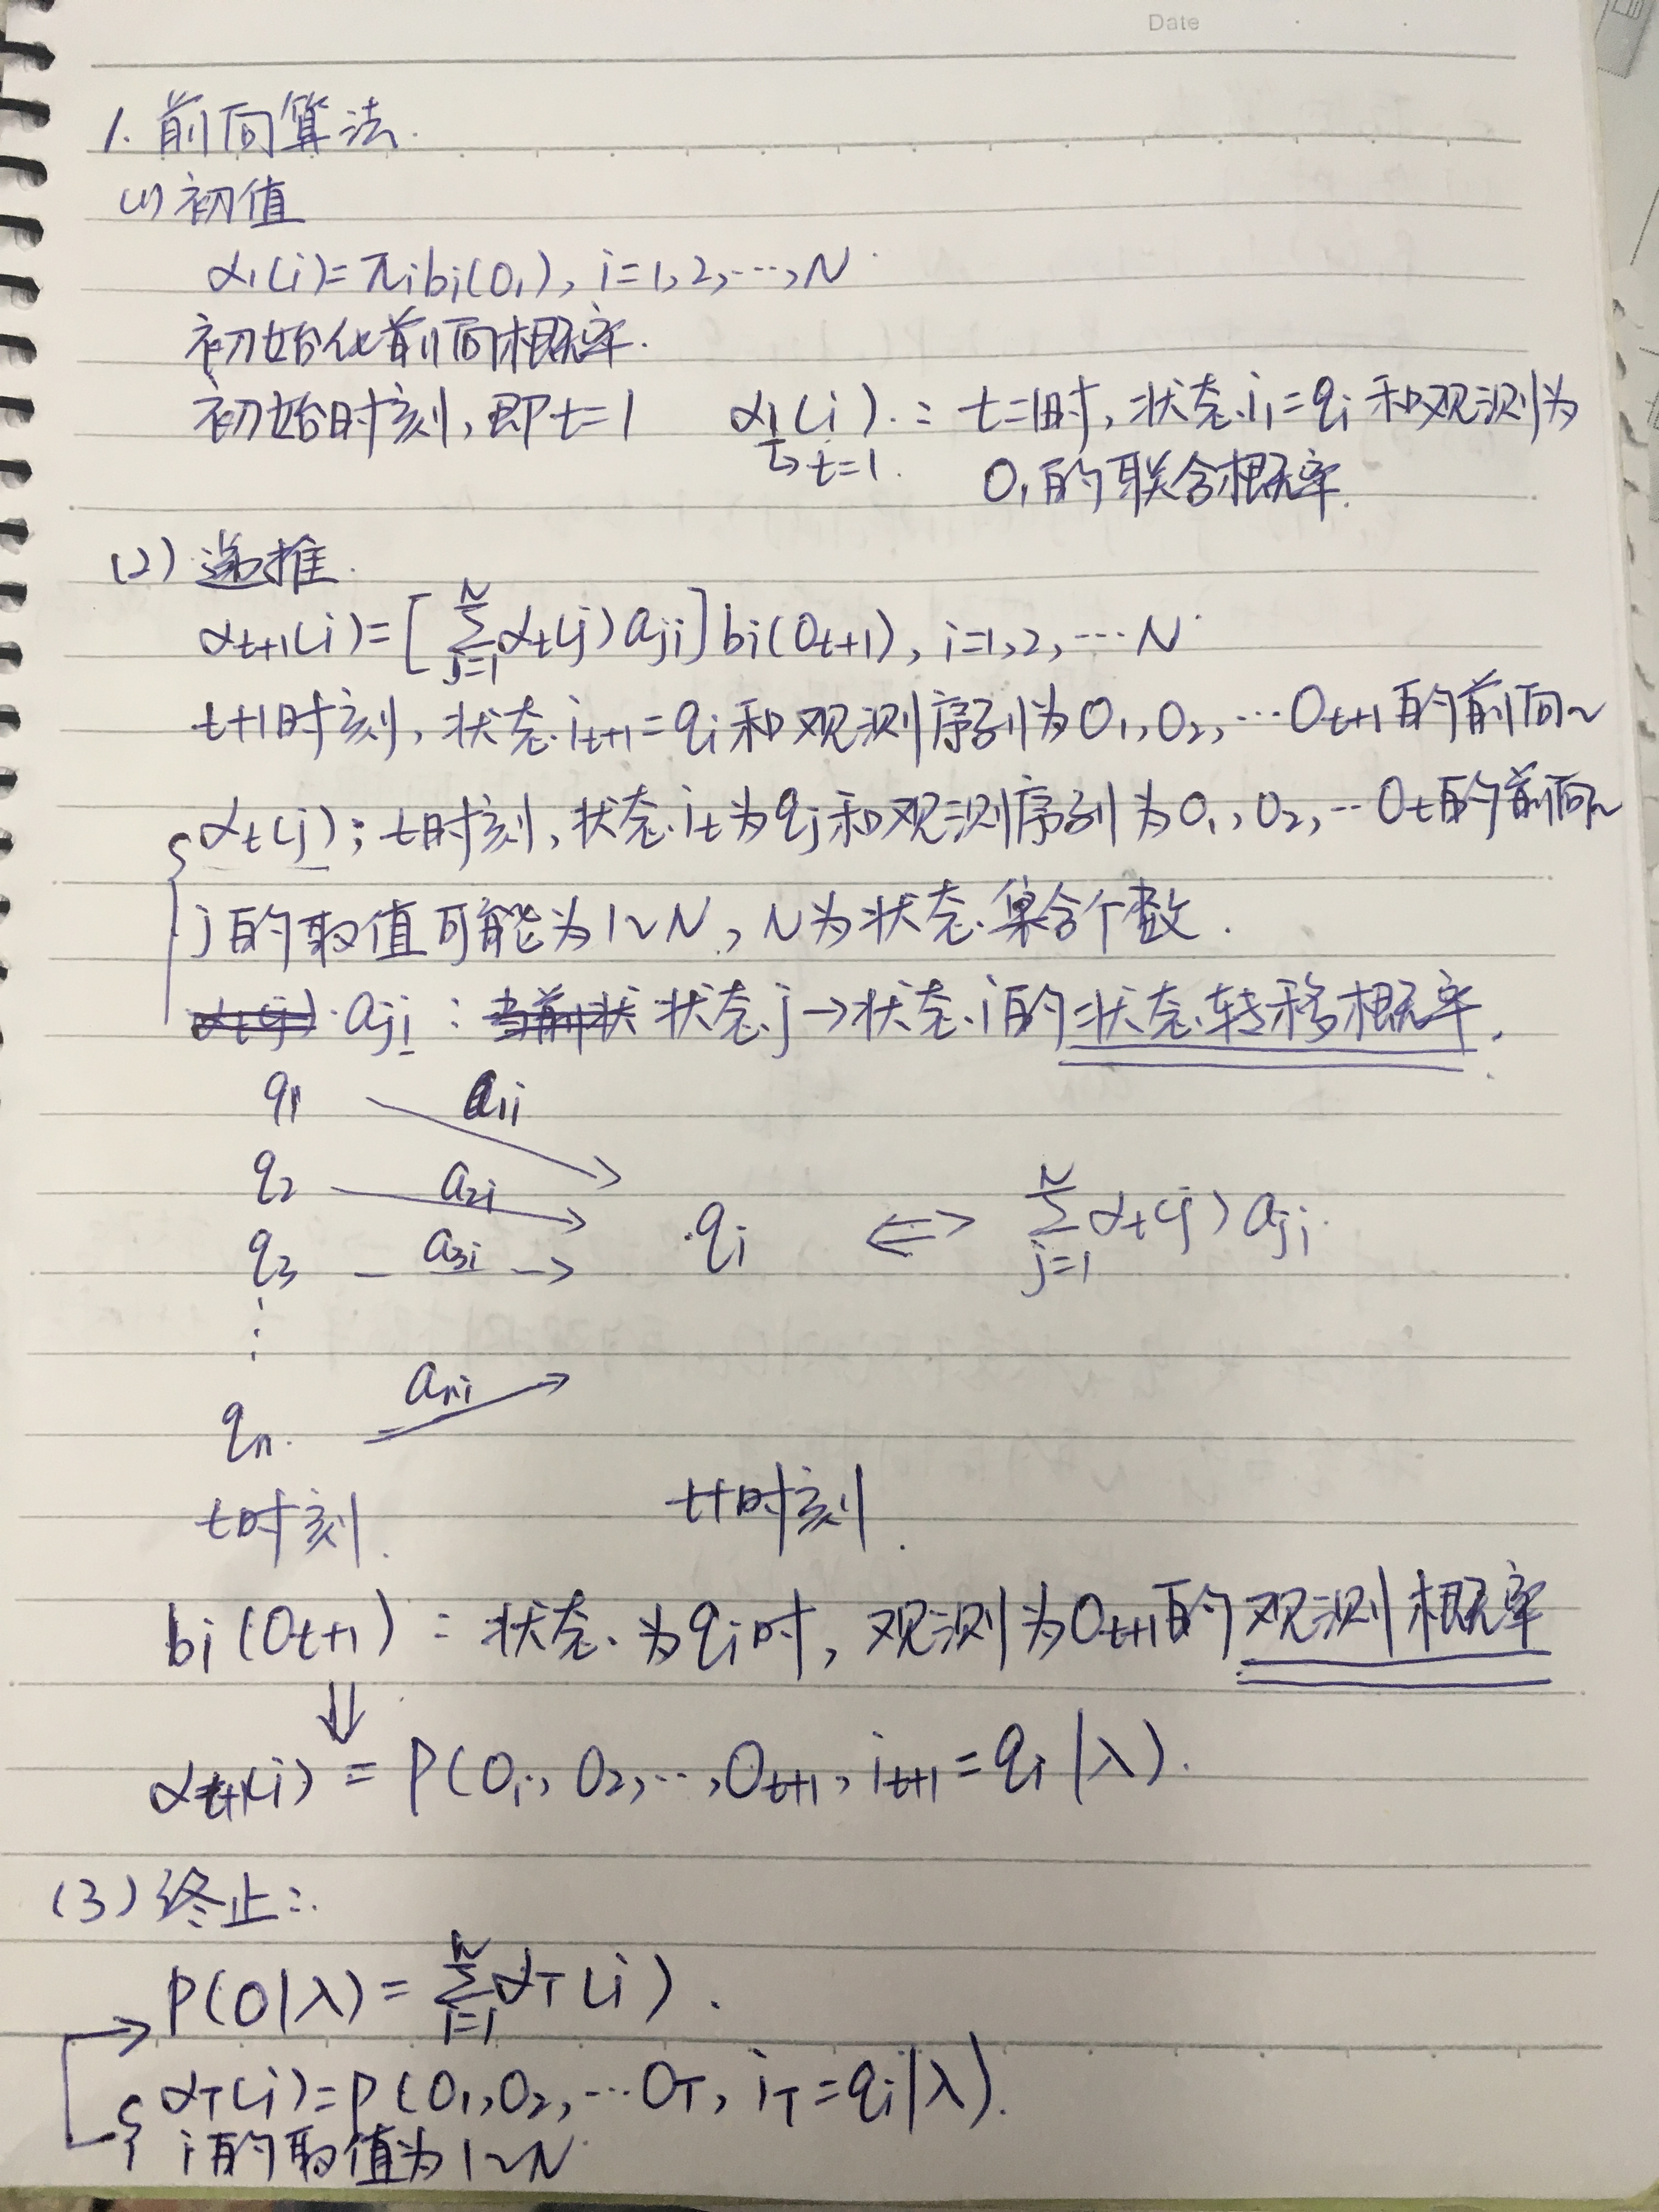 Date
1. 前向算法.
(1) 初值
α₁(i)=πᵢbᵢ(O₁), i=1,2,…,N
初始化前向概率.
初始时刻,即t=1 α₁(i): t=1时,状态i₁=qᵢ和观测为
↳t=1. O₁的联合概率.
(2) 递推.
αₜ₊₁(i)=[∑ⱼ₌₁ᴺ αₜ(j)aⱼᵢ]bᵢ(Oₜ₊₁), i=1,2,…N
t+1时刻,状态iₜ₊₁=qᵢ和观测序列为O₁,O₂,…Oₜ₊₁的前向~
αₜ(j); t时刻,状态iₜ为qⱼ和观测序列为O₁,O₂,…Oₜ的前向~
j的取值可能为1~N, N为状态集合个数.
aⱼᵢ: 状态j→状态i的状态转移概率.
q₁ a₁ᵢ
q₂ a₂ᵢ
q₃ a₃ᵢ → qᵢ ⟺ ∑ⱼ₌₁ᴺ αₜ(j)aⱼᵢ
⋮
qₙ. aₙᵢ
t时刻. t+1时刻.
bᵢ(Oₜ₊₁): 状态为qᵢ时,观测为Oₜ₊₁的观测概率
⇓
αₜ₊₁(i) = P(O₁, O₂,…,Oₜ₊₁, iₜ₊₁=qᵢ|λ).
(3) 终止:
P(O|λ)=∑ᵢ₌₁ᴺ α_T(i).
α_T(i)=P(O₁,O₂,…O_T, i_T=qᵢ|λ).
i的取值为1~N